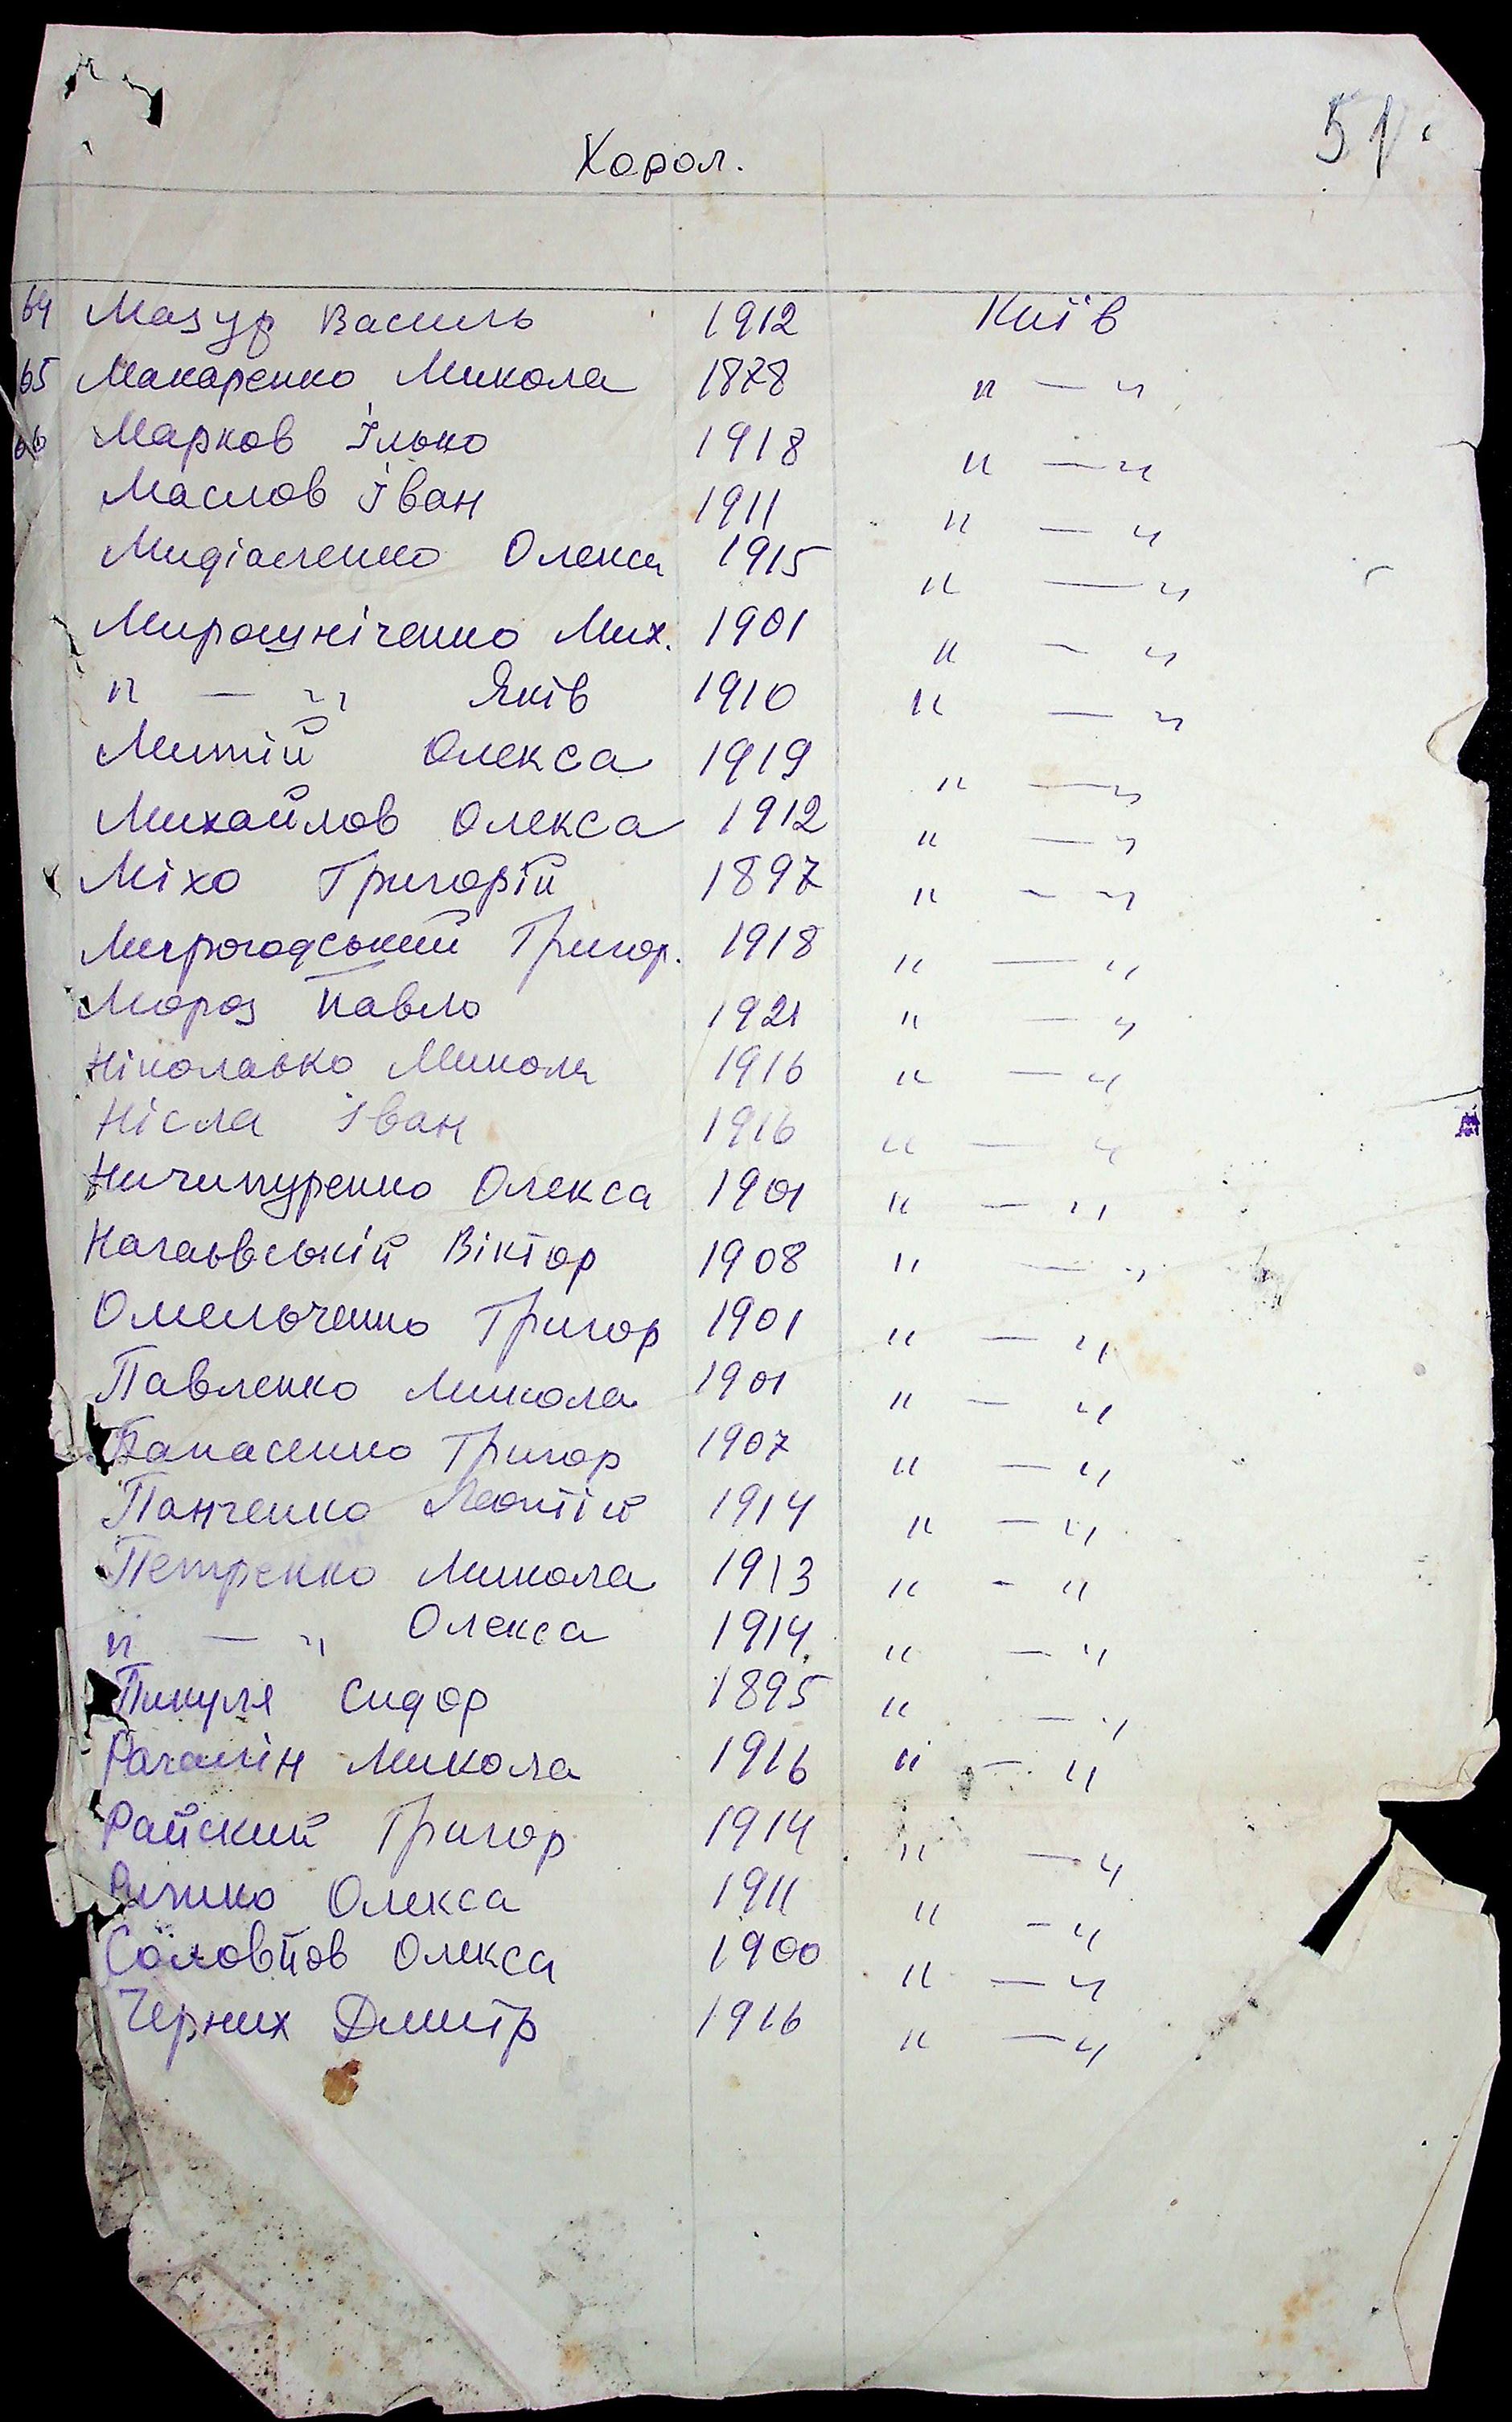 51
Хорол.
64 Мазур Василь 1912 Київ
65 Макаренко Микола 1878 " — "
66 Марков Ілько 1918 " — "
Маслов Іван 1911 " — "
Олекса 1915 " — "
Мирошніченко Мих. 1901 " — "
" — " Яків 1910 " — "
Митій Олекса 1919 " — "
Михайлов Олекса 1912 " — "
Міхо Григорій 1897 " — "
Миргодський Григор. 1918 " — "
Мороз Павло 1921 " — "
Ніколаько Микола 1916 " — "
Нісла Іван 1916 " — "
Ничипуренко Олекса 1901 " — "
Віктор 1908 " — "
Омельченко Григор 1901 " — "
Павленко Микола 1901 " — "
Панасенко Григор 1907 " — "
Панченко Леонтій 1914 " — "
Петренко Микола 1913 " - "
" — " Олекса 1914 " — "
Пикуля Сидор 1895 " — "
Микола 1916 " — "
Райский Григор 1914 " — "
Олекса 1911 " - "
Соловйов Олекса 1900 " — "
Черних Дмитр 1916 " — "